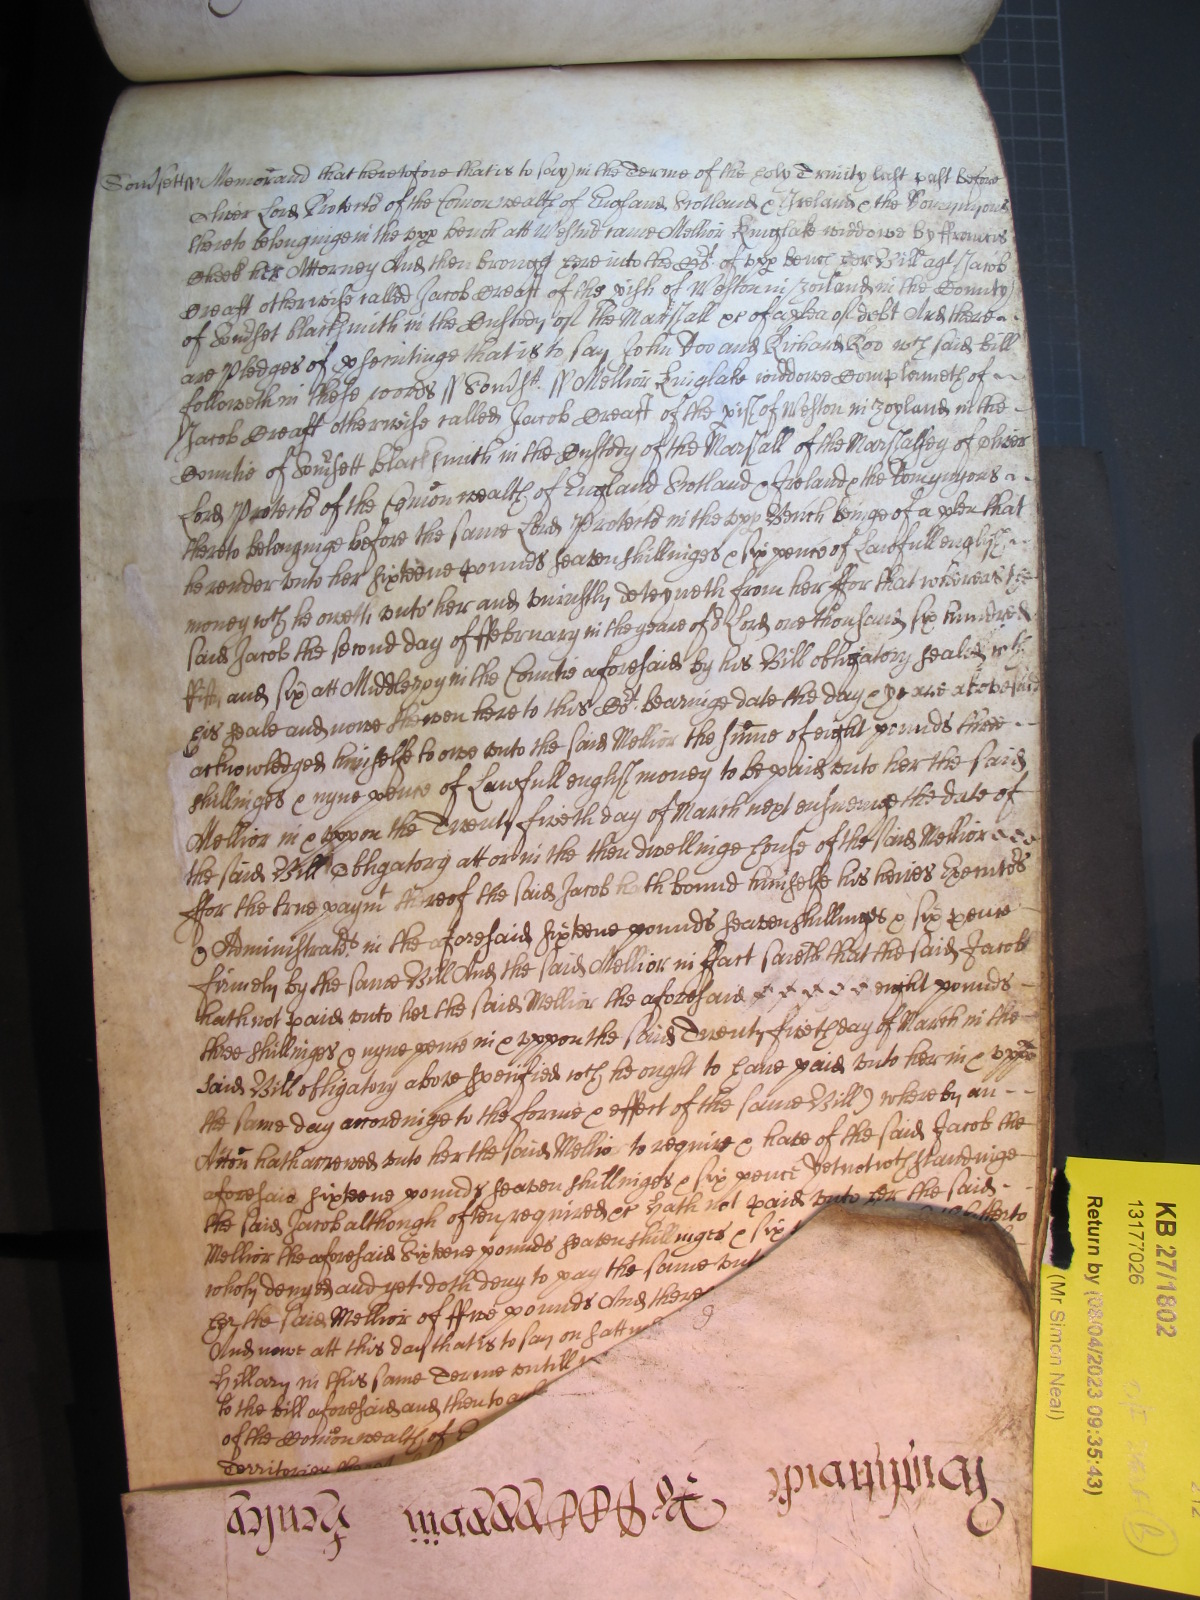 Somsett ss Memorand that heretofore that is to say in the Terme of the holy Trinity last past before
Oliver Lord Protector of the Comonwealth of England Scotland & Ireland & the Dominyons
thereto belonginge in the upp bench att Westmr came Mellior Kinglake widdowe by Francis
her Attorney And then brought here into the Cort of upp bench her Bill agt Jacob
Creaft otherwise called Jacob Creaft of the pish of Weston in Zoyland in the County
of Somset blacksmith in the Custody of the Marshall &c of a plea of debt And there
are Pledges of psecutinge that is to say John Doo and Richard Roo wch said bill
followeth in these words ss Somst ss Mellior Kinglake widdowe Complayneth of
Jacob Creaft otherwise called Jacob Creaft of the pish of Weston in Zoyland in the
Countie of Somsett blacksmith in the Custody of the Marshall of the Marshallsey of Oliver
Lord Protector of the Comonwealth of England Scotland & Ireland & the Dominyons
thereto belonginge before the same Lord Protector in the upp Bench beinge of a plea that
he render unto her sixteene pounds seaven shillinges & six pence of Lawfull english
money wch he oweth unto her and uniustly deteyneth from her ffor that whereas the
said Jacob the second day of ffebruary in the yeare of or Lord one thousand six hundred
ffifty and six att Middlezoy in the Countie aforesaid by his Bill obligatory sealed with
his seale and nowe shewen here to this Cort bearinge date the day & yeare abovesaid
acknowledged himselfe to owe unto the said Mellior the sume of eight pounds three
shillinges & nyne pence of Lawfull english money to be paid unto her the said
Mellior in & uppon the Twenty fiveth day of March next ensueinge the date of
the said Bill Obligatory att or in the then dwellinge house of the said Mellior
ffor the true paymt thereof the said Jacob hath bound himselfe his heires Executors
& Administrators in the aforesaid sixteene pounds seaven shillinges & six pence
firmely by the same Bill And the said Mellior in ffact saieth that the said Jacob
hath not paid unto her the said Mellior the aforesaid eight pounds
three shillinges & nyne pence in & uppon the said Twenty fiveth day of March in the
said Bill obligatory above specified wch he ought to have paid unto her in & uppon
the same day accordinge to the forme & effect of the same Bill) whereby an
Accon hath accrewed unto her the said Mellior to require & have of the said Jacob the
aforesaid sixteene pounds seaven shillinges & six pence Yet notwthstandinge
the said Jacob although often required &c hath not paid unto her the said
Mellior the aforesaid Sixteene pounds seaven shillinges & six hitherto
wholy denyed and yet doth deny to pay the same unt
her the said Mellior of ffive pounds And there
And nowe att this day that is to say on Satt
Hillary in this same Terme untill
to the bill aforesaid and then to
of the Comonwealth of
Territories
KB 27/1802
13177026
Return by (08/04/2023 09:35:43)
(Mr Simon Neal)